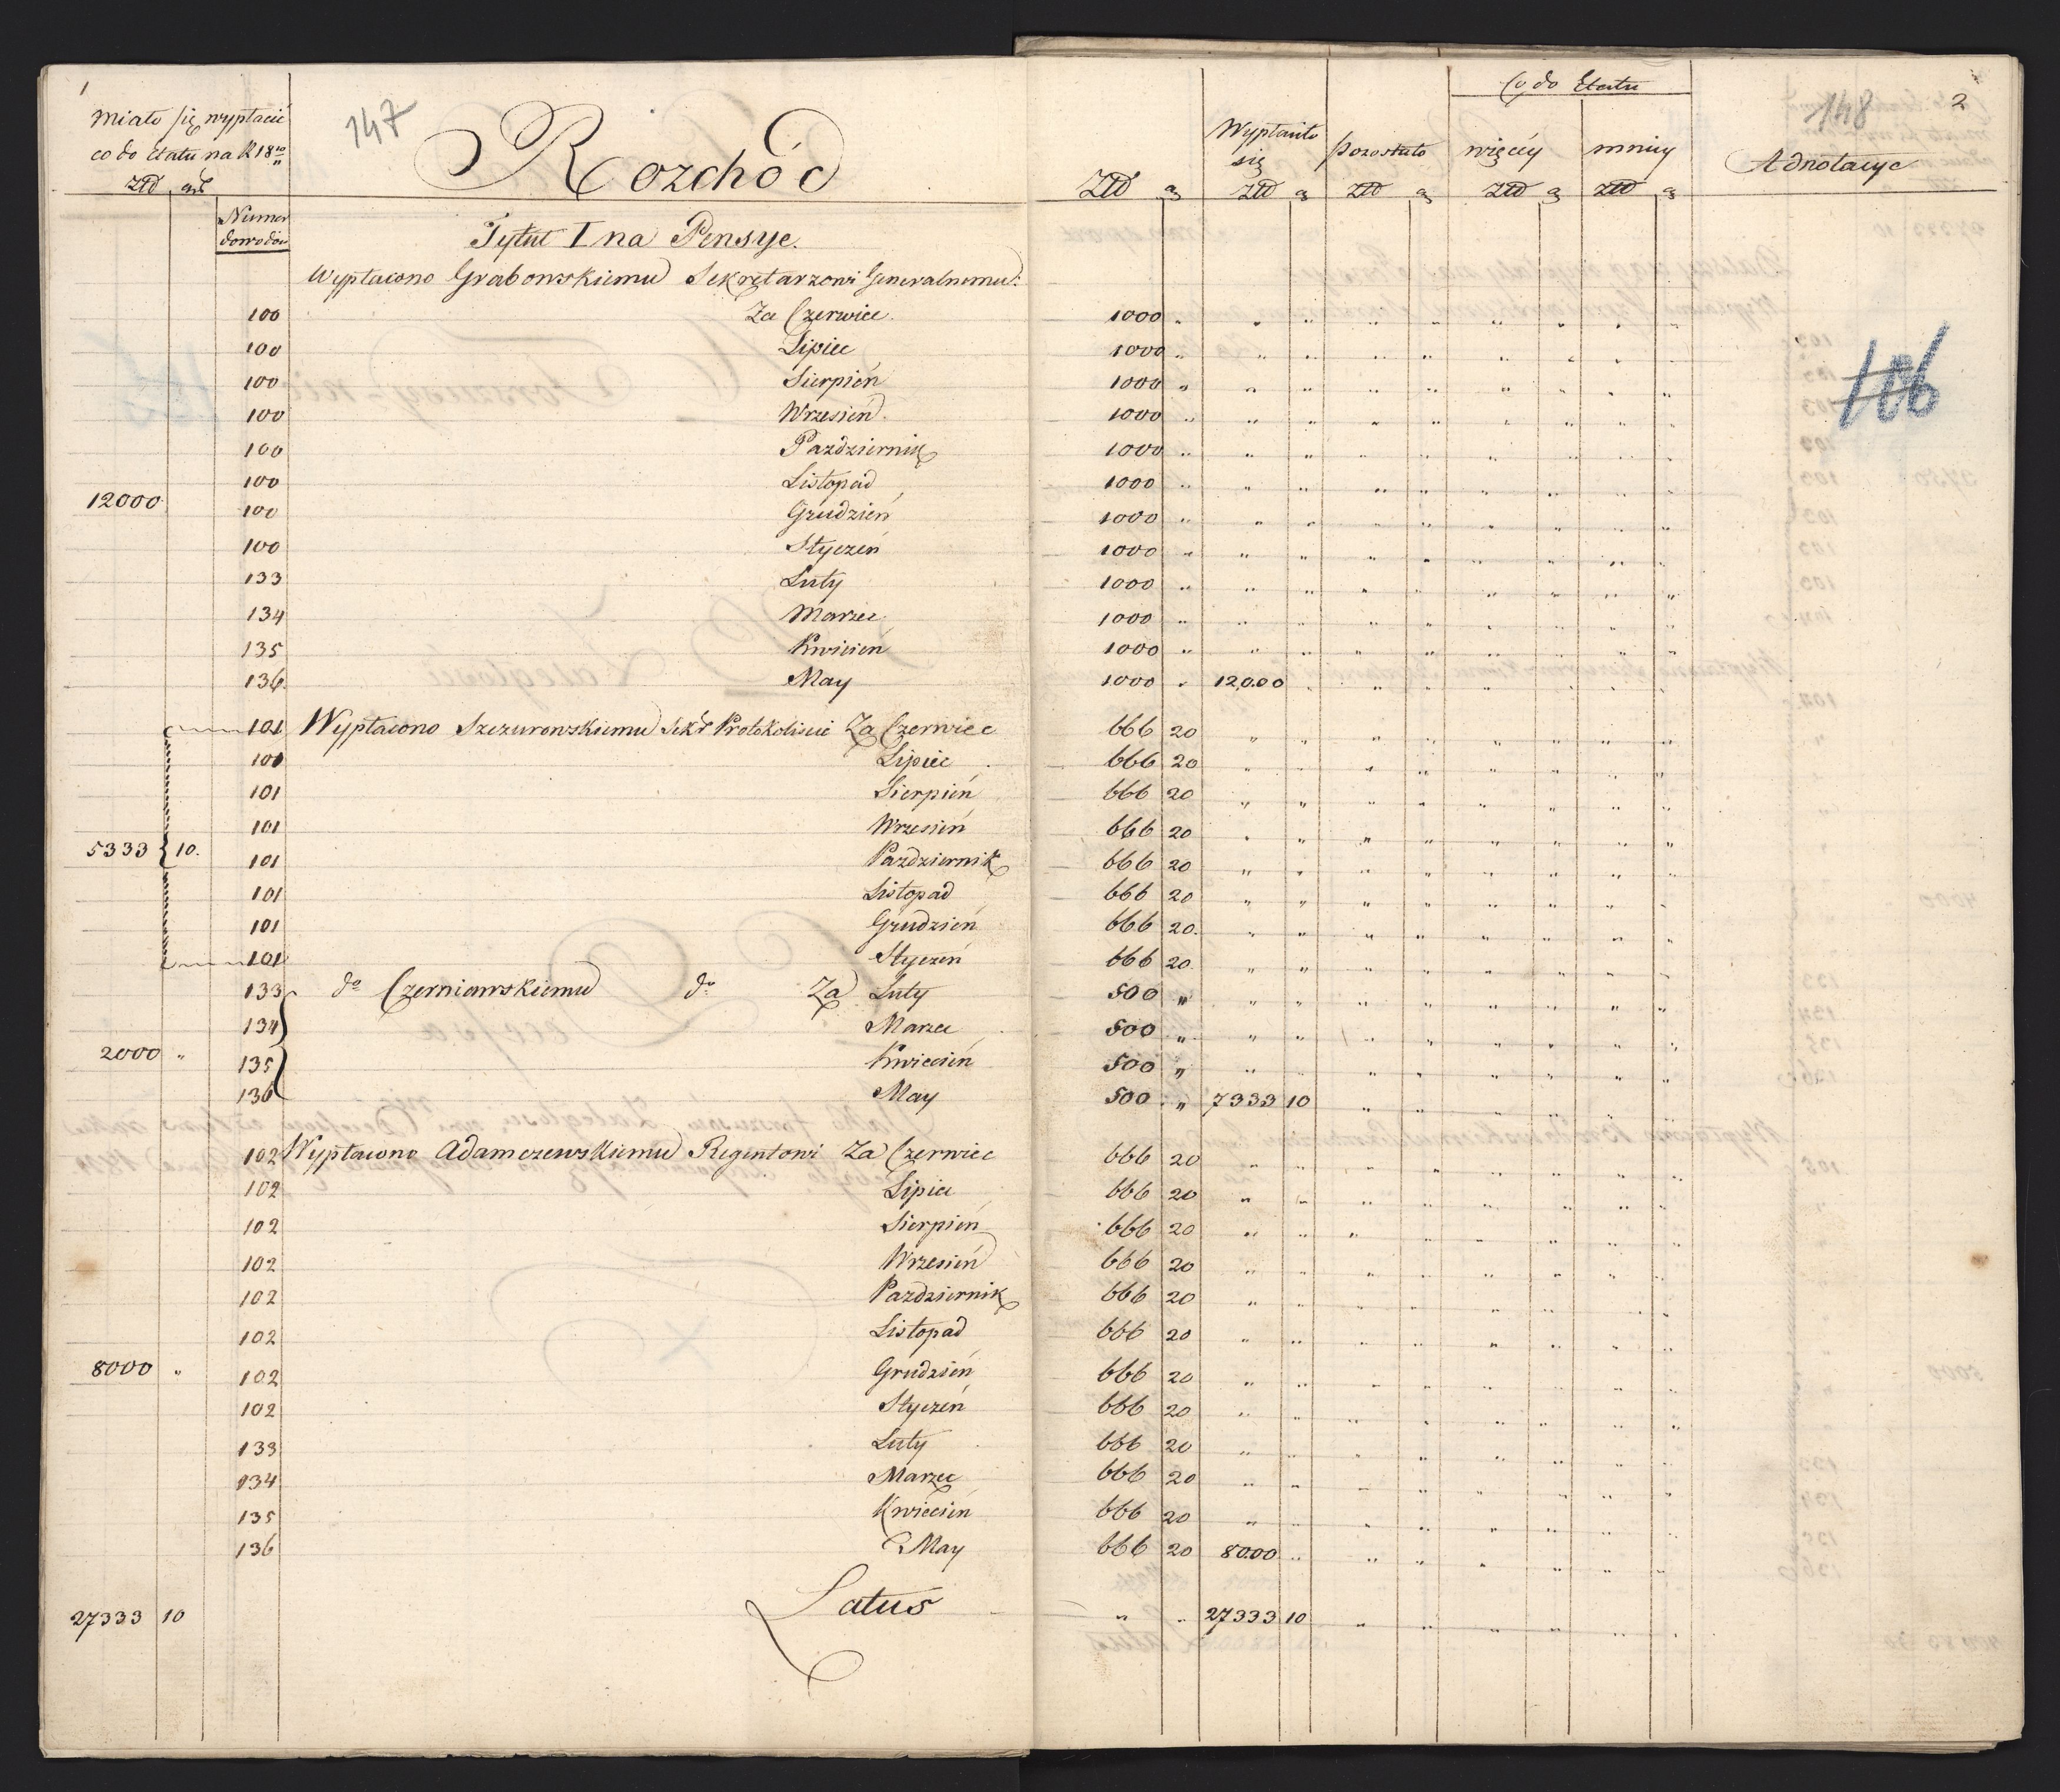 1
147
Miało się wypłacić
co do Etatu na R 18 10/11
Złł gr
Rozchód
Co do Etatu
148
2
Wypłaciło
się
pozostało
więcéy
mniéy
Adnotacye
Złł g
Złł g
Złł g
Złł g
Złł g
Numer
dowodów
Tytuł I na Pensye.
Wypłacono Grabowskiemu Sekretarzowi Generalnemu:
100 Za Czerwiec. 1000 "
100 Lipiec 1000 "
100 Sierpień 1000 "
106
100 Wrzesień 1000 "
100 Pazdziernik 1000 "
100 Listopad 1000 "
12000
100 Grudzień 1000 "
100 Styczeń 1000 "
133 Luty 1000 "
134 Marzec 1000 "
135 Kwiecień 1000 "
136 May 1000 " 12000 "
101 Wypłacono Szczurowskiemu Sekr Protokoliście Za Czerwiec 666 20
101 Lipiec 666 20
101 Sierpień 666 20
101 Wrzesień 666 20
5333 10.
101 Pazdziernik 666 20
101 Listopad 666 20
101 Grudzień 666 20
101 Styczeń 666 20
133 do Czerniawskiemu do Za Luty 500 "
134 Marzec 500 "
2000 "
135 Kwiecień 500 "
136 May 500 " 7333 10
102 Wypłacono Adamczewskiemu Regentowi Za Czerwiec 666 20
102 Lipiec 666 20
102 Sierpień 666 20
102 Wrzesień 666 20
102 Pazdziernik 666 20
102 Listopad 666 20
8000 " 102 Grudzień 666 20
102 Styczeń 666 20
133 Luty 666 20
134 Marzec 666 20
135 Kwiecień 666 20
136 May 666 20 8000 "
27333 10 Latus " " 27333 10